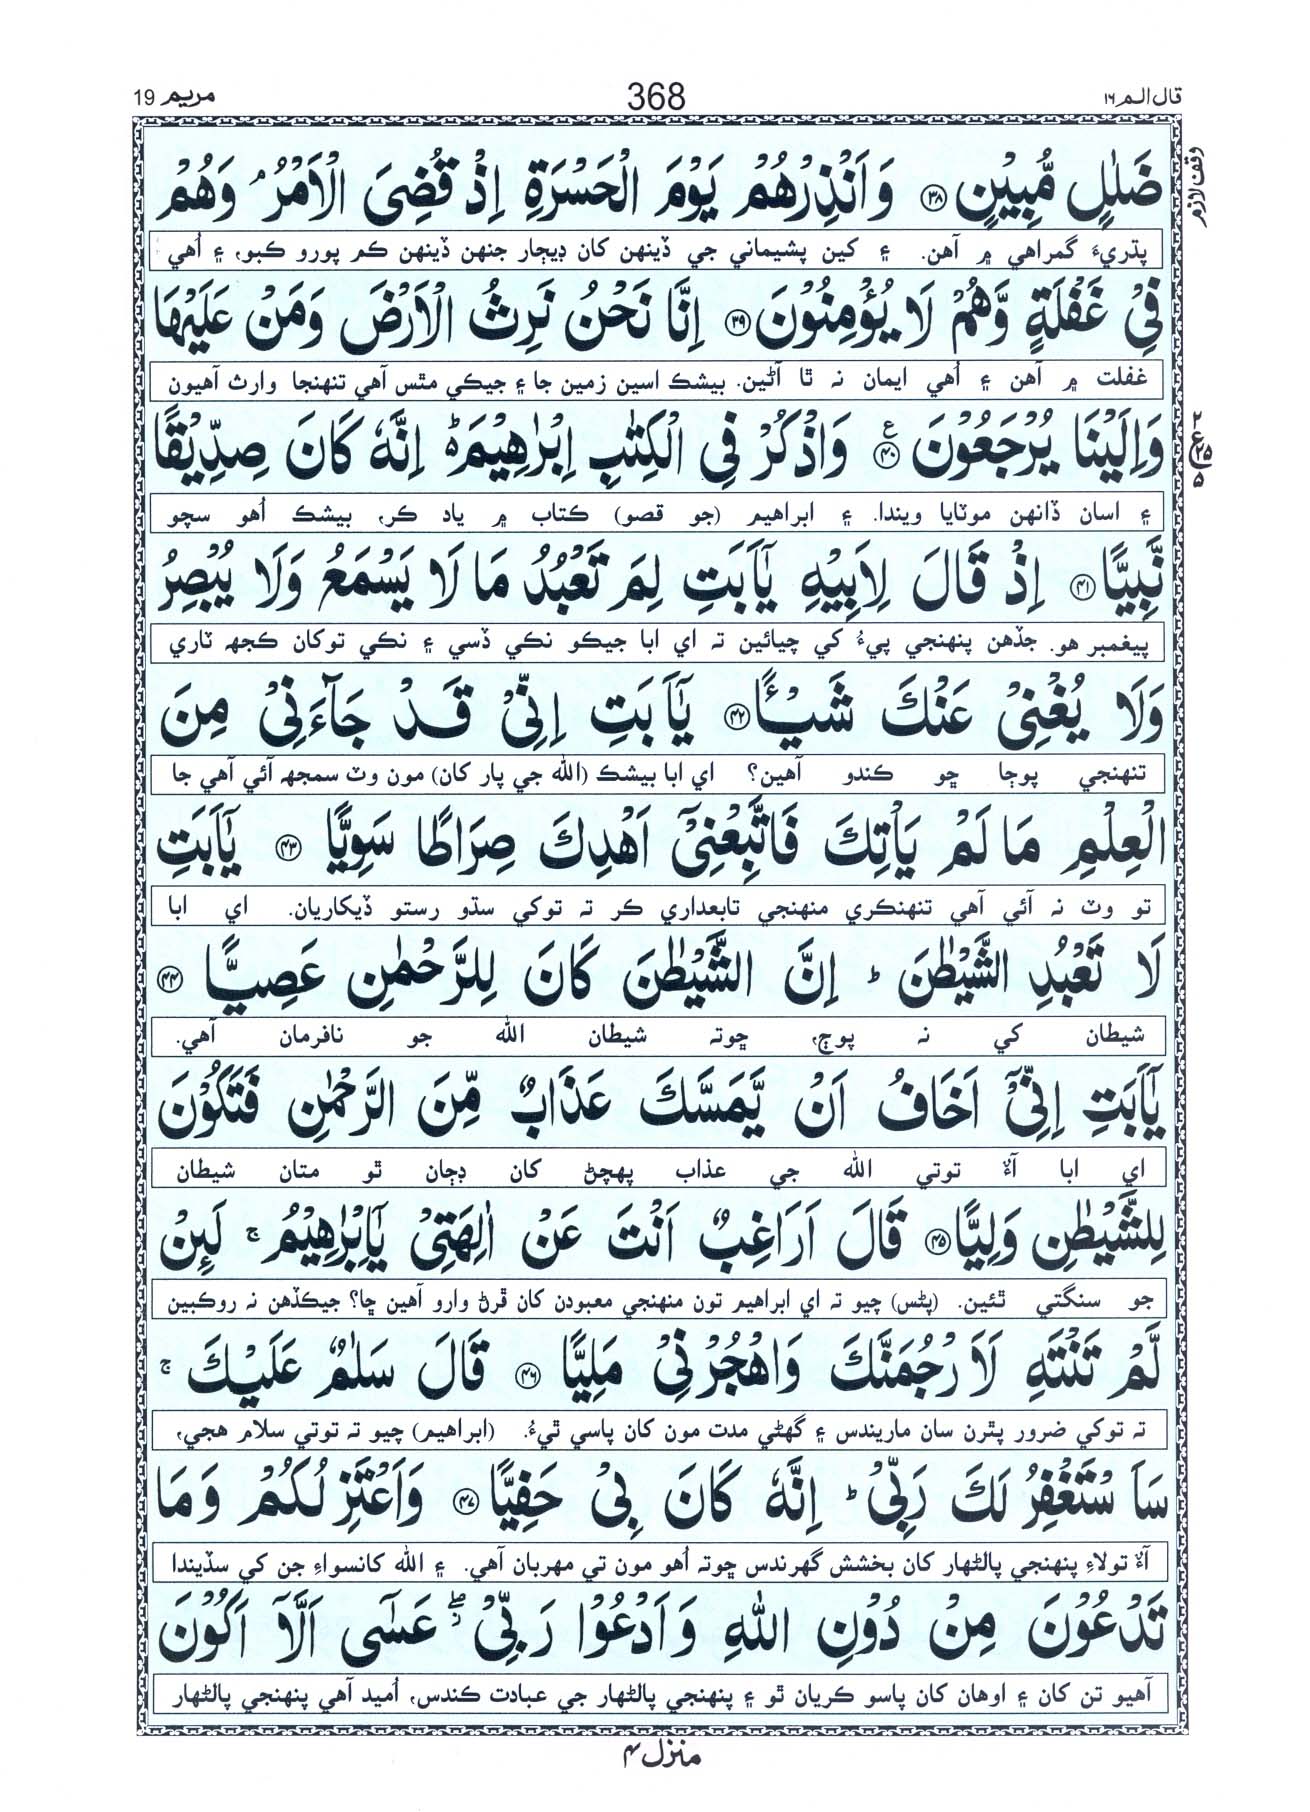 قال الم ١٦
368
مريم 19
وقف لازم
ضَلٰلٍ مُّبِيْنٍ ﴿۳۸﴾ وَاَنْذِرْهُمْ يَوْمَ الْحَسْرَةِ اِذْ قُضِىَ الْاَمْرُ ۘ وَهُمْ
پڌريءَ گمراهي ۾ آهن. ۽ کين پشيماني جي ڏينهن کان ڊيڄار جنهن ڏينهن ڪم پورو ڪبو، ۽ اُهي
فِىْ غَفْلَةٍ وَّهُمْ لَا يُؤْمِنُوْنَ ﴿۳۹﴾ اِنَّا نَحْنُ نَرِثُ الْاَرْضَ وَمَنْ عَلَيْهَا
غفلت ۾ آهن ۽ اُهي ايمان نہ ٿا آڻين. بيشڪ اسين زمين جا ۽ جيڪي مٿس آهي تنهنجا وارث آهيون
وَاِلَيْنَا يُرْجَعُوْنَ ﴿۴۰﴾ ع وَاذْكُرْ فِى الْكِتٰبِ اِبْرٰهِيْمَ ؕ اِنَّهٗ كَانَ صِدِّيْقًا
۽ اسان ڏانهن موٽايا ويندا. ۽ ابراهيم (جو قصو) ڪتاب ۾ ياد ڪر، بيشڪ اُهو سچو
نَّبِيًّا ﴿۴۱﴾ اِذْ قَالَ لِاَبِيْهِ يٰۤاَبَتِ لِمَ تَعْبُدُ مَا لَا يَسْمَعُ وَلَا يُبْصِرُ
پيغمبر هو. جڏهن پنهنجي پيءُ کي چيائين تہ اي ابا جيڪو نڪي ڏسي ۽ نڪي توکان ڪجهہ ٽاري
وَلَا يُغْنِىْ عَنْكَ شَيْـًٔا ﴿۴۲﴾ يٰۤاَبَتِ اِنِّىْ قَدْ جَآءَنِىْ مِنَ
تنهنجي پوڄا ڇو ڪندو آهين؟ اي ابا بيشڪ (الله جي پار کان) مون وٽ سمجهہ آئي آهي جا
الْعِلْمِ مَا لَمْ يَاْتِكَ فَاتَّبِعْنِىْۤ اَهْدِكَ صِرَاطًا سَوِيًّا ﴿۴۳﴾ يٰۤاَبَتِ
تو وٽ نہ آئي آهي تنهنڪري منهنجي تابعداري ڪر تہ توکي سڌو رستو ڏيکاريان. اي ابا
لَا تَعْبُدِ الشَّيْطٰنَ ؕ اِنَّ الشَّيْطٰنَ كَانَ لِلرَّحْمٰنِ عَصِيًّا ﴿۴۴﴾
شيطان کي نہ پوڄ، ڇوتہ شيطان الله جو نافرمان آهي.
يٰۤاَبَتِ اِنِّىْۤ اَخَافُ اَنْ يَّمَسَّكَ عَذَابٌ مِّنَ الرَّحْمٰنِ فَتَكُوْنَ
اي ابا آءٌ توتي الله جي عذاب پهچڻ کان ڊڄان ٿو متان شيطان
لِلشَّيْطٰنِ وَلِيًّا ﴿۴۵﴾ قَالَ اَرَاغِبٌ اَنْتَ عَنْ اٰلِهَتِىْ يٰۤاِبْرٰهِيْمُ ۚ لَىِٕنْ
جو سنگتي ٿئين. (پڻس) چيو تہ اي ابراهيم تون منهنجي معبودن کان ڦرڻ وارو آهين ڇا؟ جيڪڏهن نہ روڪبين
لَّمْ تَنْتَهِ لَاَرْجُمَنَّكَ وَاهْجُرْنِىْ مَلِيًّا ﴿۴۶﴾ قَالَ سَلٰمٌ عَلَيْكَ ۚ
تہ توکي ضرور پٿرن سان ماريندس ۽ گهڻي مدت مون کان پاسي ٿيءُ. (ابراهيم) چيو تہ توتي سلام هجي،
سَاَسْتَغْفِرُ لَكَ رَبِّىْ ؕ اِنَّهٗ كَانَ بِىْ حَفِيًّا ﴿۴۷﴾ وَاَعْتَزِلُكُمْ وَمَا
آءٌ تولاءِ پنهنجي پالڻهار کان بخشش گهرندس ڇوتہ اُهو مون تي مهربان آهي. ۽ الله کانسواءِ جن کي سڏيندا
تَدْعُوْنَ مِنْ دُوْنِ اللّٰهِ وَاَدْعُوْا رَبِّىْ ۖ عَسٰۤى اَلَّاۤ اَكُوْنَ
آهيو تن کان ۽ اوهان کان پاسو ڪريان ٿو ۽ پنهنجي پالڻهار جي عبادت ڪندس، اُميد آهي پنهنجي پالڻهار
منزل ۴